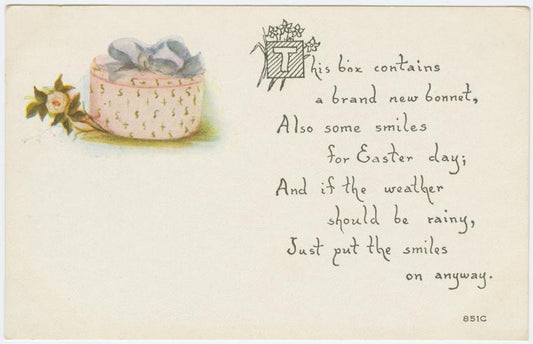 This box contains
a brand new bonnet,
Also some smiles
for Easter day;
And if the weather
should be rainy,
Just put the smiles
on anyway.
851C